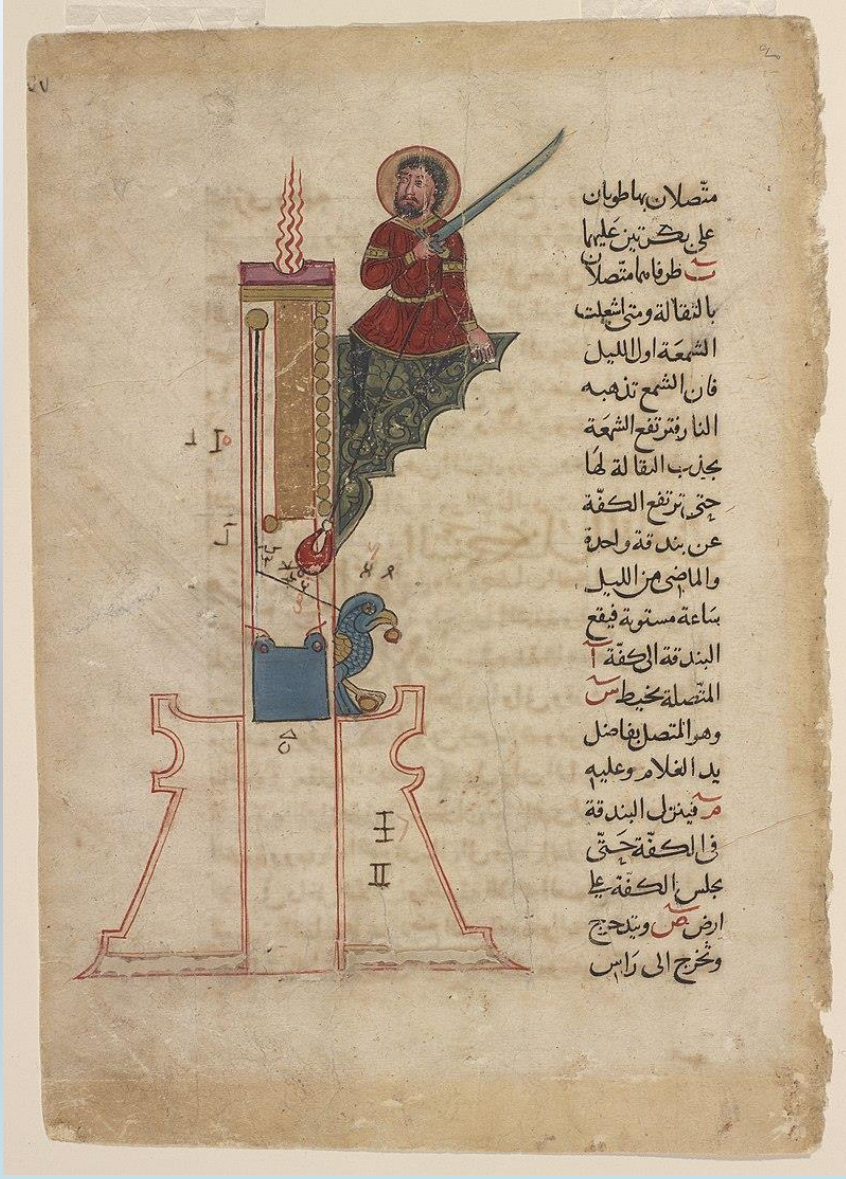 متصلان بها طويان
على بكرتين عليهما
ت طرفاهما متصلان
بالثقالة ومتى اشعلت
الشمعة اول الليل
فان الشمع تذهبه
النار فترتفع الشمعة
بجذب الثقالة لها
حتى ترتفع الكفّة
عن بندقة واحدة
والماضى من الليل
ساعة مستوية فيقع
البندقة الى كفّة آ
المتصلة بخيط س
وهو المتصل بفاضل
يد الغلام وعليه
م فينزل البندقة
فى الكفّة حَتّى
يجلس الكفّة على
ارض ص ويتدحرج
وتخرج الى رَاس